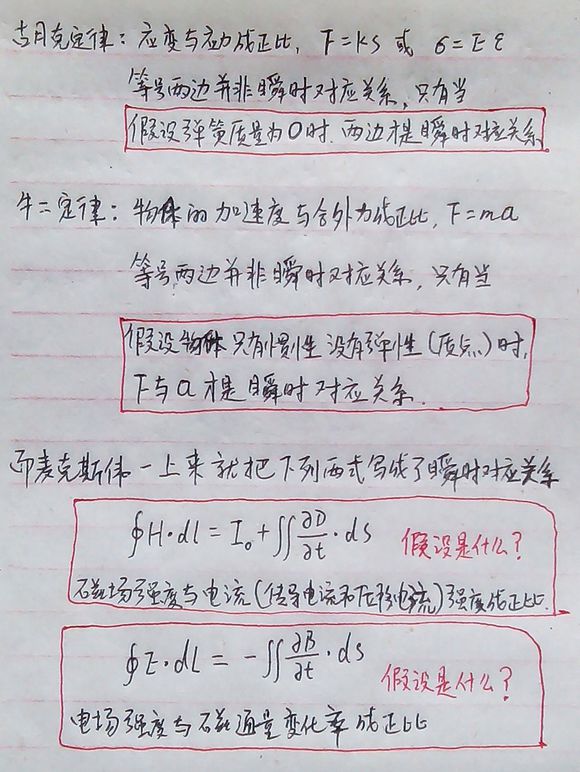 胡克定律：应变与应力成正比，F=kS 或 σ=Eε
等号两边并非瞬时对应关系，只有当
假设弹簧质量为0时，两边才是瞬时对应关系
牛二定律：物体的加速度与合外力成正比，F=ma
等号两边并非瞬时对应关系，只有当
假设物体只有惯性没有弹性（质点）时，
F与a才是瞬时对应关系.
而麦克斯伟一上来就把下列两式写成了瞬时对应关系
∮H·dl = I₀ + ∬∂D/∂t·ds 假设是什么？
磁场强度与电流（传导电流和位移电流）强度成正比.
∮E·dl = -∬∂B/∂t·ds 假设是什么？
电场强度与磁通量变化率成正比